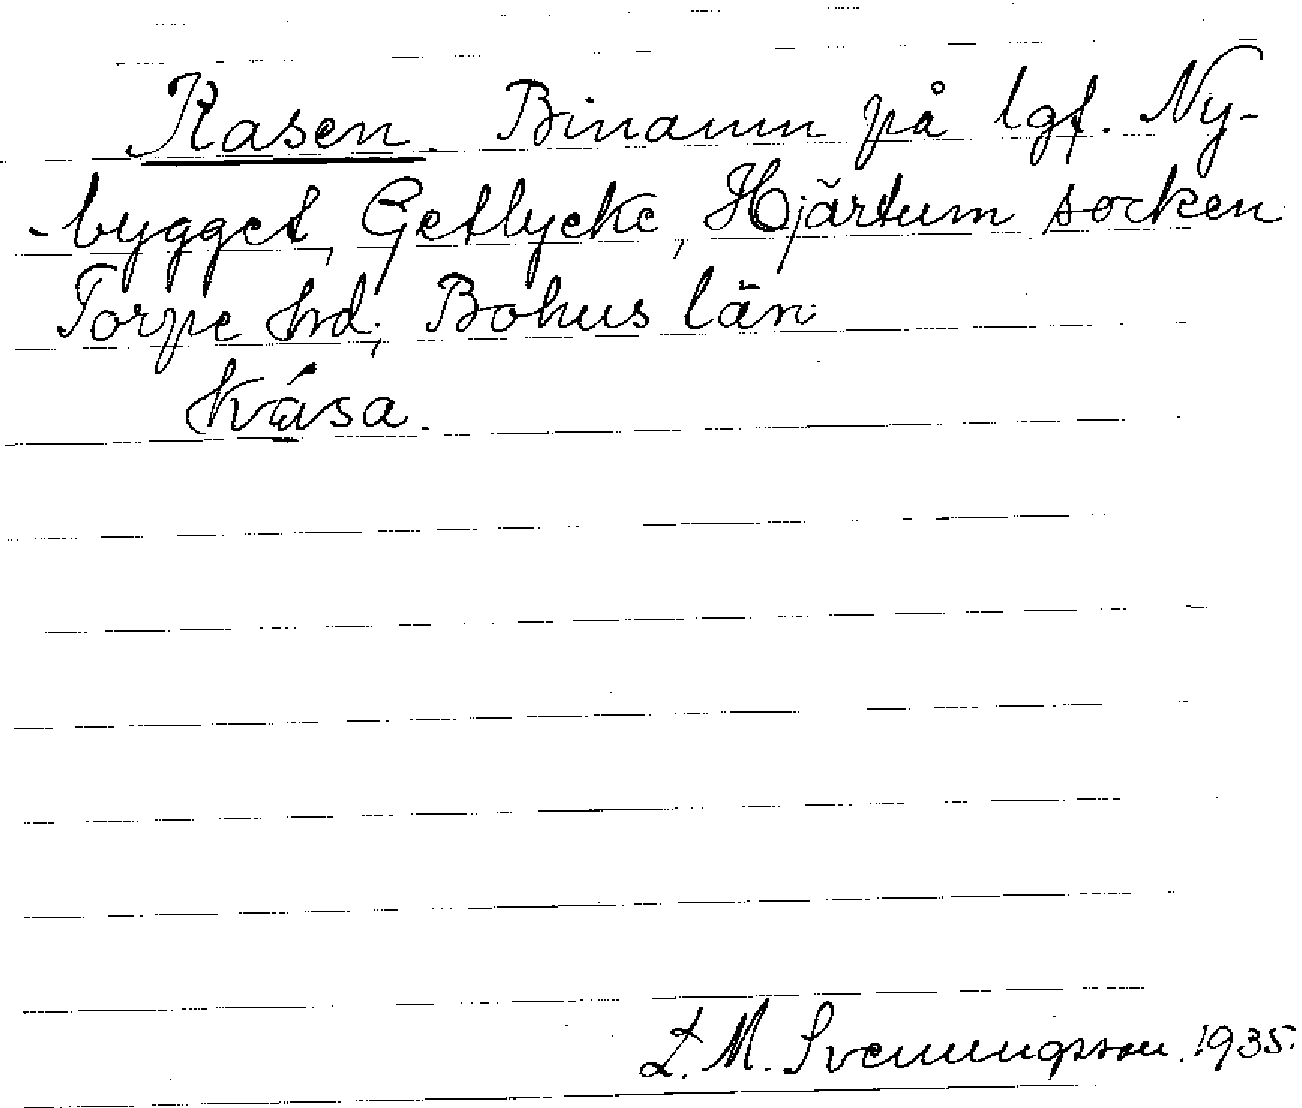 Kasen. Binamn på lgf. Ny-
-bygget, Getlycke, Hjärtum socken
Torpe hrd; Bohus län
Kása.
L. M. Svenungsson. 1935.